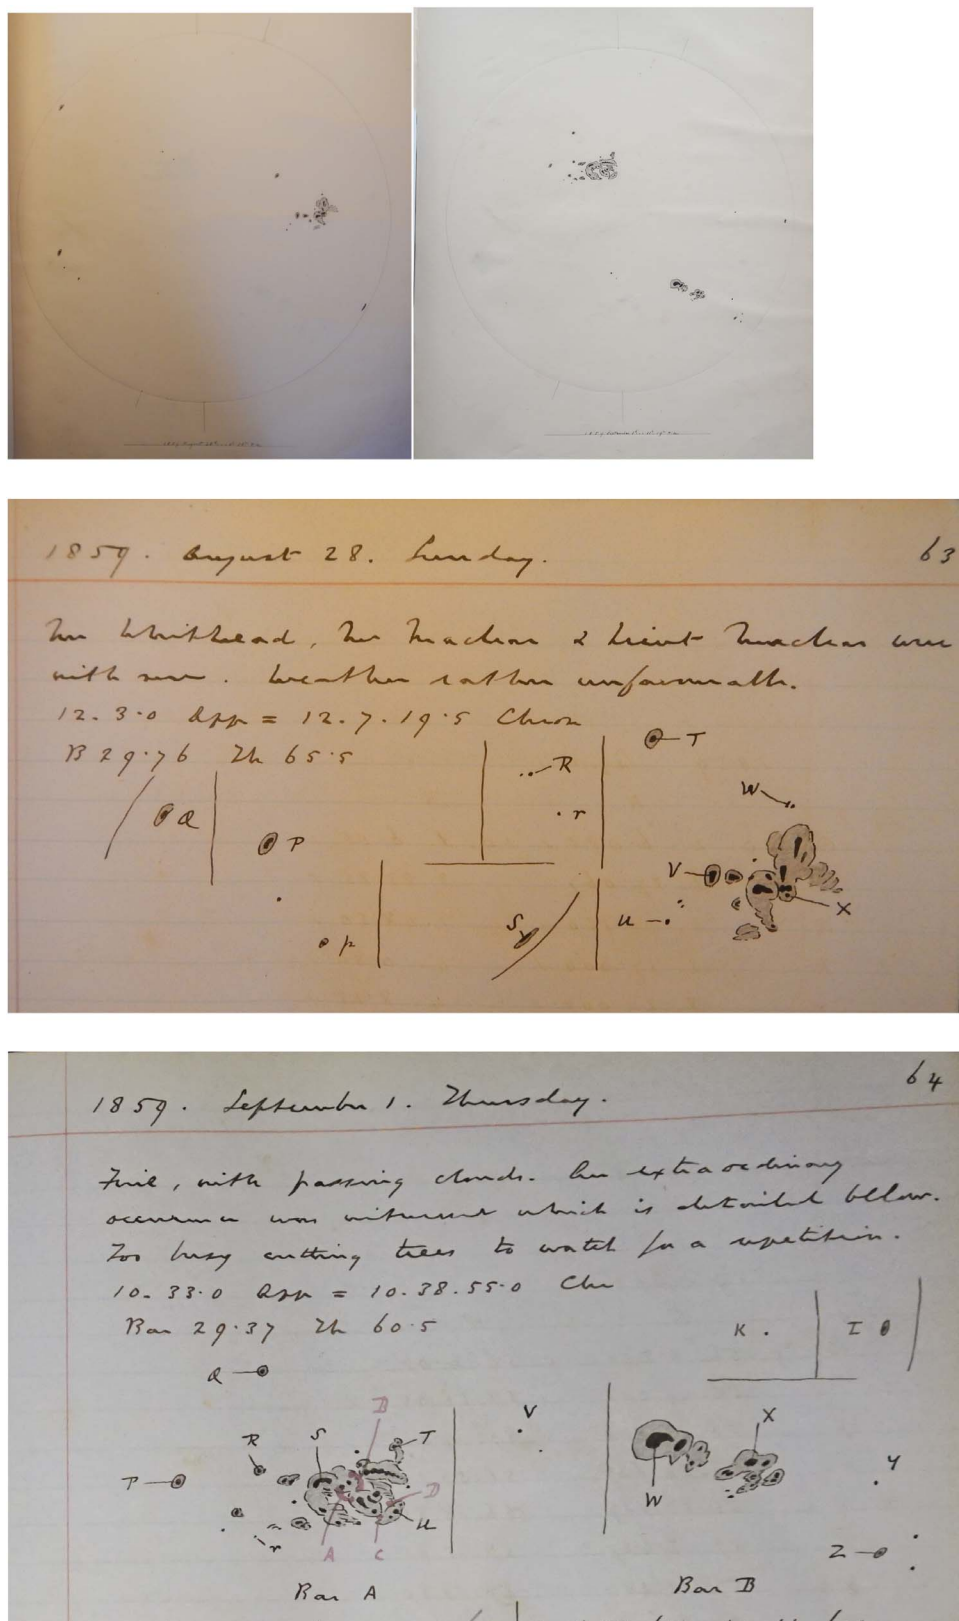 1859. August 28. Sunday. 63
Mr Whithead, Mr Maclear & Lieut Maclear were
with me. Weather rather unfavourable.
12. 3. 0 App = 12. 7. 19. 5 Chron
B 29.76 Th 65.5
T
R
W
Q
r
P
V
X
S
u
p
1859. September 1. Thursday. 64
Fine, with passing clouds. An extraordinary
occurrence was witnessed which is detailed below.
Too busy cutting trees to watch for a repetition.
10. 33.0 App = 10. 38. 55.0 Chr
Bar 29.37 Th 60.5
K I
Q
B V X
R S T
Y
P D
W
r u
A C Z
Bar A Bar B